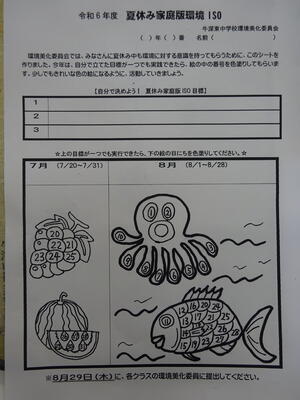 令和6年度 夏休み家庭版環境 ISO
牛深東中学校環境美化委員会
( )年( )番 名前( )
環境美化委員会では、みなさんに夏休み中も環境に対する意識を持ってもらうために、このシートを
作りました。今年は、自分で立てた目標が一つでも実践できたら、絵の中の番号を色塗りしてもらいま
す。少しでもきれいな色の絵になるように、活動していきましょう。
【自分で決めよう! 夏休み家庭版ISO目標】
1
2
3
☆上の目標が一つでも実行できたら、下の絵の日にちを色塗りしてください。☆
7月 (7/20~7/31) 8月 (8/1~8/28)
20 21 22 23 24 25
※8月29日(木)に、各クラスの環境美化委員に提出してください。